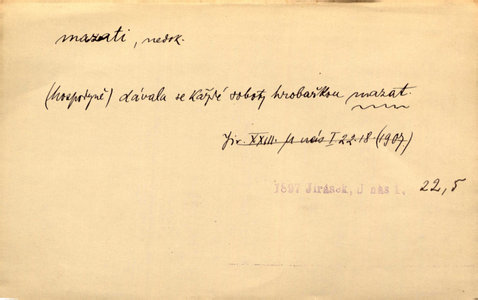 mazati, nedok.
(hospodyně) dávala se každé soboty hrobařkou mazat.
Jir. XXIII. U nás I 22.18 (1907)
1897 Jirásek, U nás I. 22,5